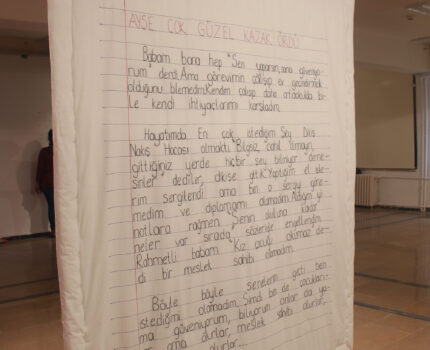 AYŞE ÇOK GÜZEL KAZAK ÖRDÜ
Babam bana hep "Sen yaparsın, sana güveniyo-
rum" derdi. Ama görevimin çalışıp ev geçindirmek
olduğunu bilemedim. Kendim çalışıp daha ortaokulda bi-
le kendi ihtiyaçlarımı karşıladım.
Hayatımda En çok istediğim Şey Dikiş
Nakış Hocası olmaktı. "Bilgisiz, cahil olmayın,
gittiğiniz yerde hiçbir şey bilmiyor deme-
sinler" dediler, dikişe gittik. Yaptığım el işle-
rim sergilendi ama ben o sergiyi göre-
medim ve diplomamı alamadım. Aldığım iyi
notlara rağmen "Senin duluna kadar
neler var sırada" sözleriyle engellendim.
Rahmetli babam "Kız çocuğu okumaz" de-
di bir meslek sahibi olmadım.
Böyle böyle senelerim geçti ben
istediğimi olamadım. Şimdi ben de çocukları-
ma güveniyorum, biliyorum onlar da ya-
ama olurlar, meslek sahibi olurlar,
olurlar...